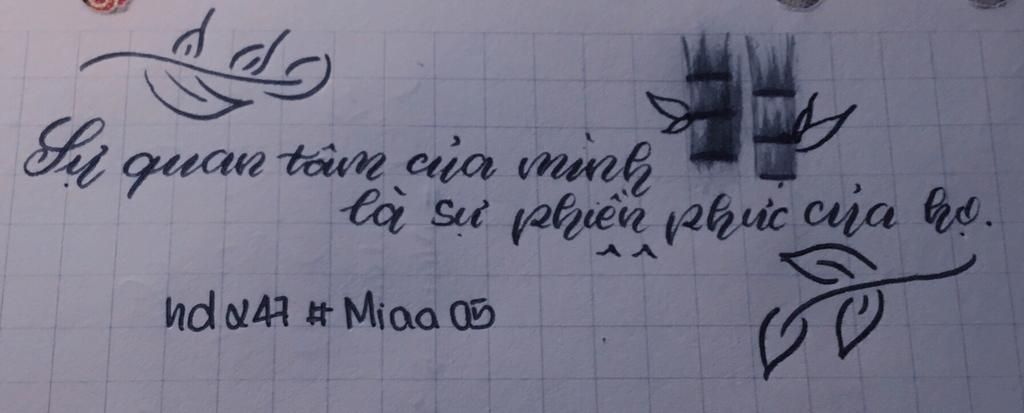 Sự quan tâm của mình
là sự phiền phức của họ.
^ ^
hdα47 # Miaa05